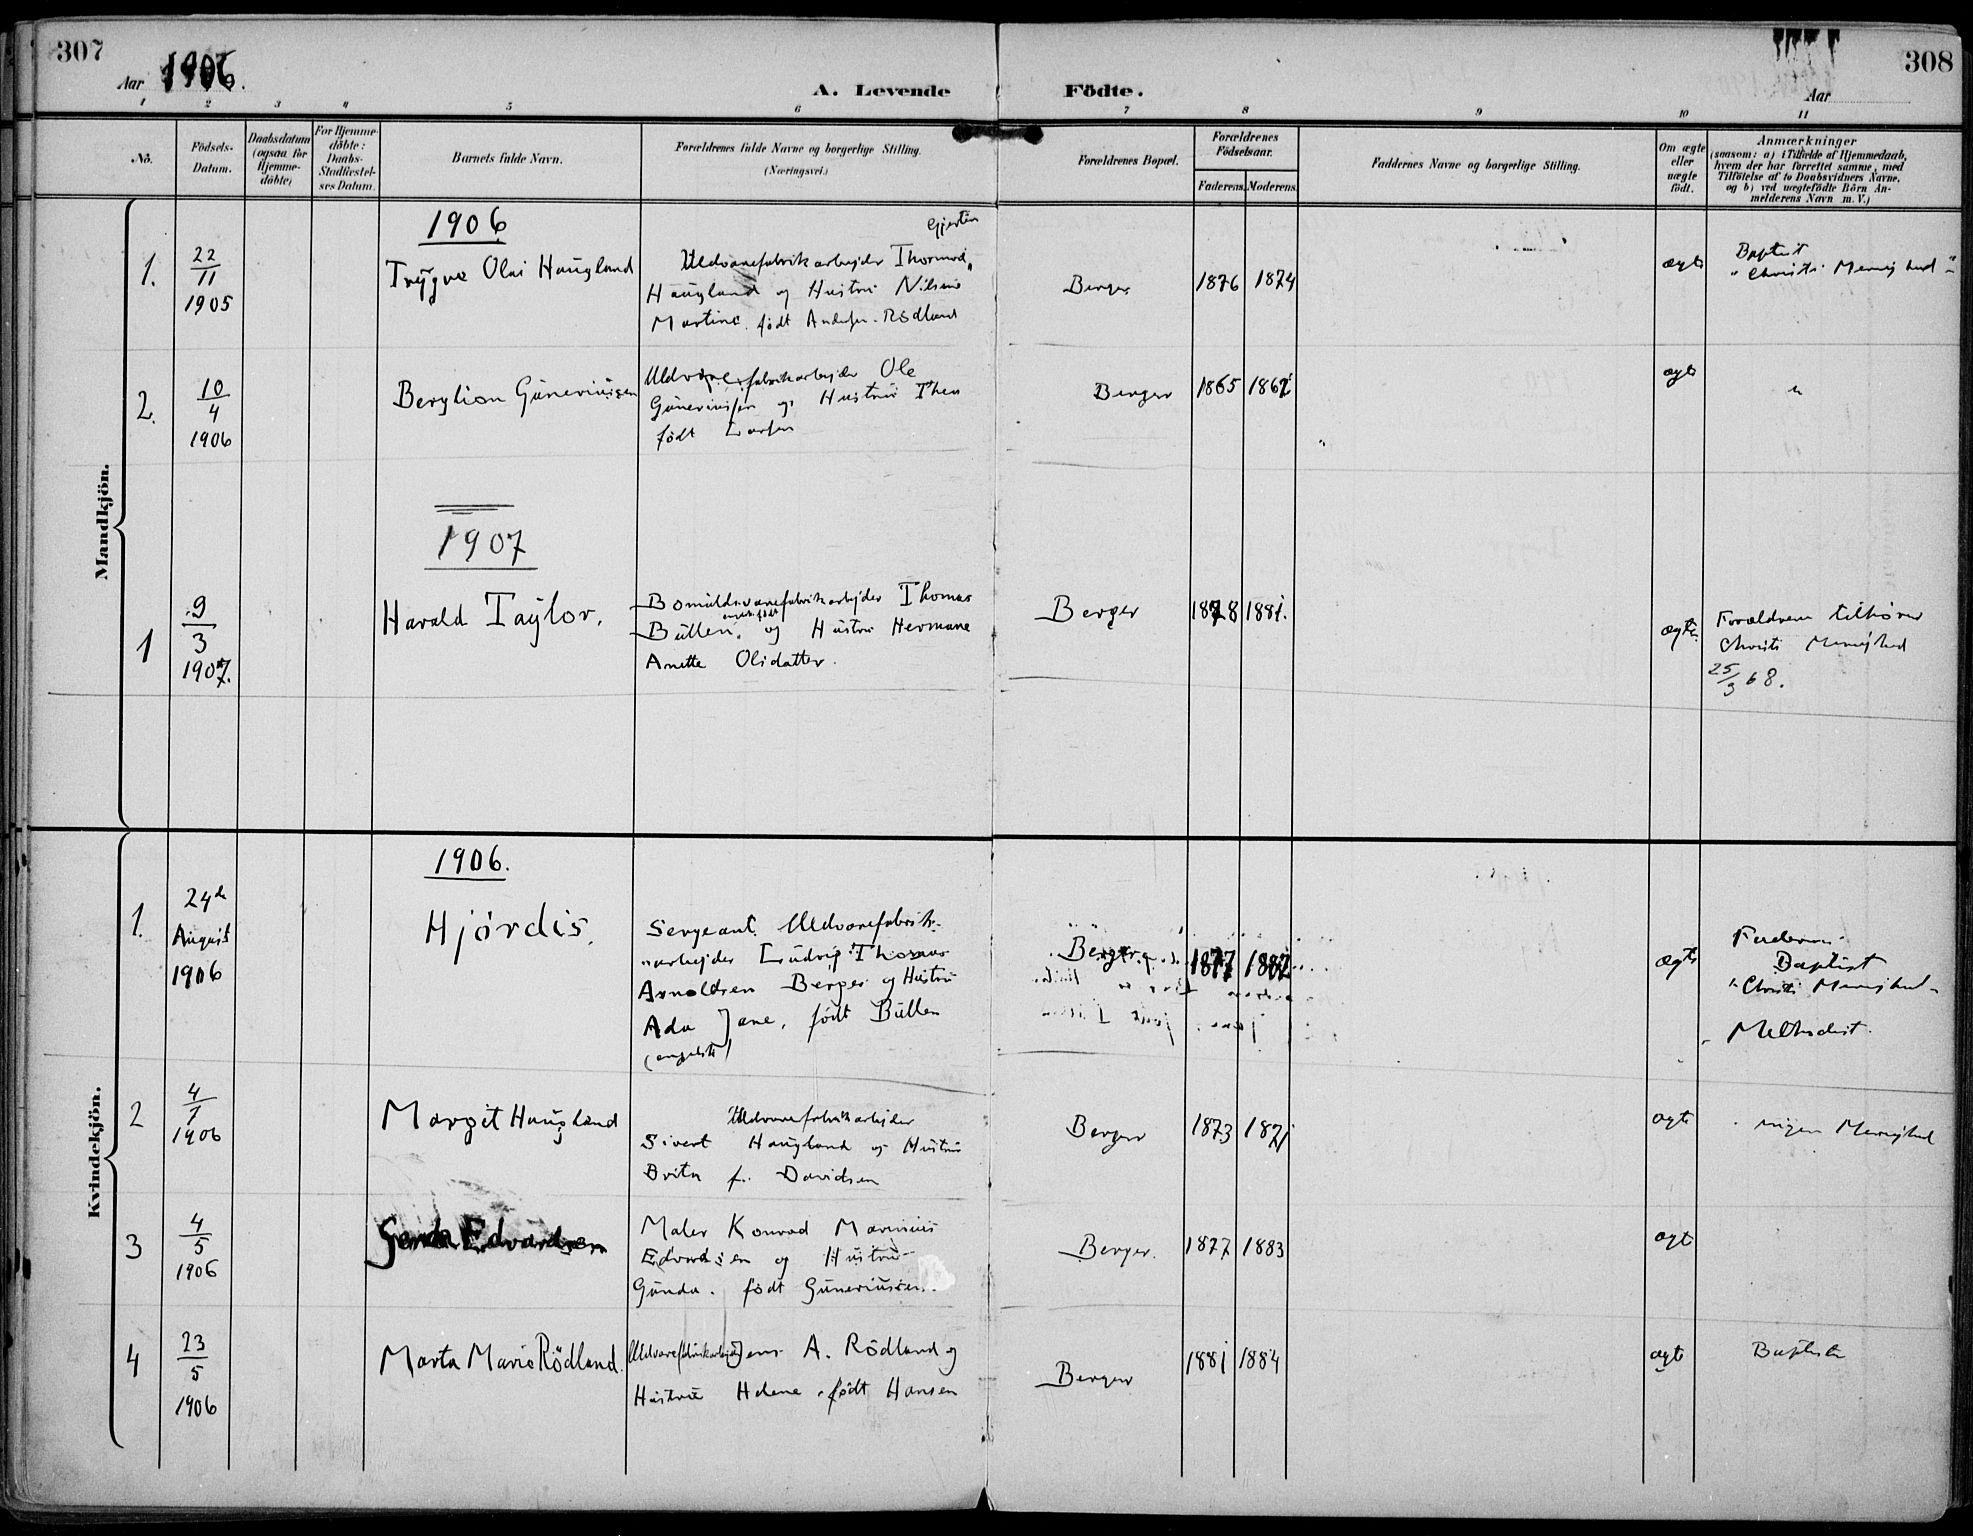 307
308
Aar 1906.
A. Levende Födte.
Aar
1 2 3 4 5 6 7 8 9 10 11
No.
Födsels-Datum.
Daabsdatum (ogsaa for Hjemme-döbte)
For Hjemme-döbte: Daabs-Stadfæstel-ses Datum.
Barnets fulde Navn.
Forældrenes fulde Navne og borgerlige Stilling.
(Næringsvei.)
Forældrenes Bopæl.
Forældrenes Födselsaar.
Faderens. Moderens.
Faddernes Navne og borgerlige Stilling.
Om ægte eller uægte födt.
Anmærkninger
(saasom: a) i Tilfælde af Hjemmedaab,
hvem der har forrettet samme, med
Tilföielse af to Daabsvidners Navne,
og b) ved uægtefödte Börn An-
melderens Navn m. V.)
Mandkjön.
1906
Gjertin
1. 22/11 1905
Trygve Olai Haugland
Uldvarefabrikarbejder Thormod
Haugland og Hustru Nilsine
Martine født Andersen Rødland
Berger
1876 1874
ægte
Baptist
"Christi Menighed"
2. 10/4 1906
Guneriussen
Uldvarefabrikarbejder Ole
Guneriussen og Hustru Thea
født Larsen
Berger
1865
ægte
"
1907
1 9/3 1907.
Harald Taylor.
Bomuldsvarefabrikarbejder Thomas
Bullen, og Hustru Hermane
Anette Olsdatter.
Berger
1878 1881.
ægte
Forældrene tilhører
Christi Menighed
25/3 68.
Kvindekjön.
1906.
1. 24de August 1906
Hjørdis.
Sergeant. Uldvarefabrik-
arbejder Ludvig Thomas
Arnoldsen Berger og Hustru
Ada Jane, født Bullen
(engelsk)
Berger
1877 1882
ægte
Faderen
Baptist
"Christi Menighed"
Methodist.
2 4/1 1906
Margit Haugland
Uldvarefabrikarbejder
Sivert Haugland og Hustru
Brita f. Davidsen
Berger
1873 1871
ægte
ingen Menighed
3 4/5 1906
Gerda Edvardsen
Maler Konrad Marinius
Edvardsen og Hustru
Gunda. født Gunerius​sen.
Berger.
1877 1883
ægte
4 23/5 1906
Marta Marie Rödland.
Uldvarefabrikarbejder Jens A. Rödland og
Hustru Helene født Hansen
Berger
1881 1884
ægte
Baptister